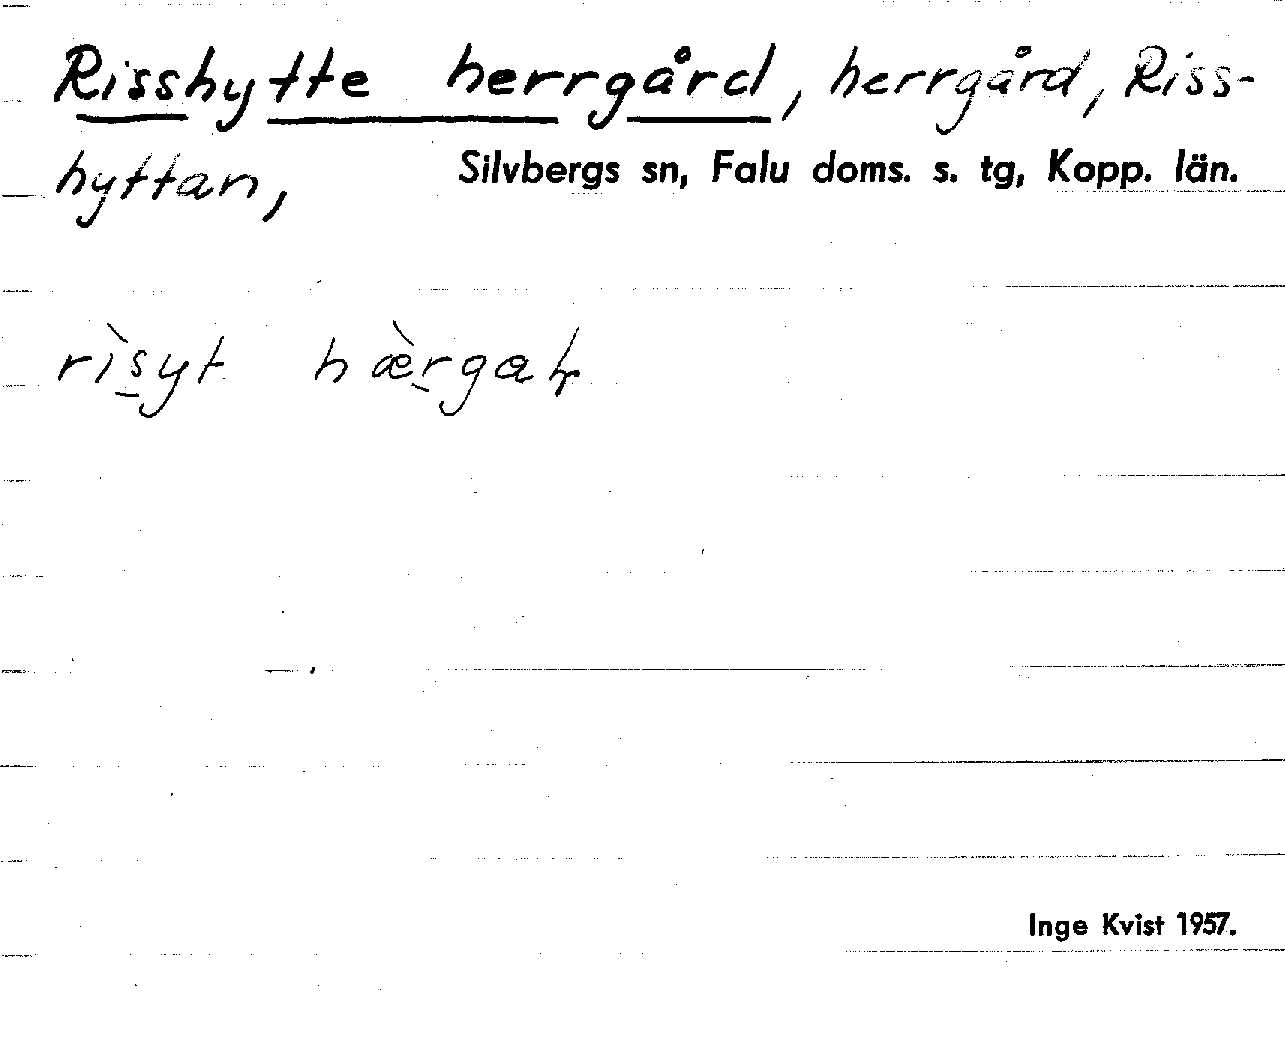 Risshytte herrgård, herrgård, Riss-
hyttan, Silvbergs sn, Falu doms. s. tg, Kopp. län.
rìs̠yt hæ̀r̠gaꞎ
Inge Kvist 1957.